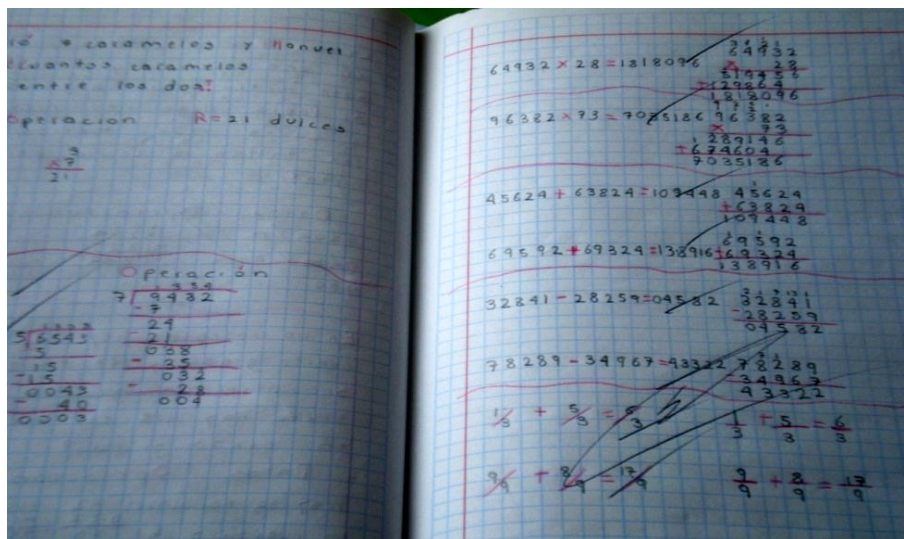 caramelos y Manuel
cuantos caramelos
entre los dos?
Operacion R=21 dulces
3
x7
21
Operación
7 9432
-7
24
-21
038
-35
032
-28
004
5 6543
-5
15
-15
0043
-40
0003
64932 x 28 = 1818096
64932
x 28
519456
+129864
1818096
96382 x 73 = 7035186
96382
x 73
289146
+674604
7035186
45624 + 63824 = 109448
45624
+63824
109448
69592 + 69324 = 138916
69592
+69324
138916
32841 - 28259 = 04582
32841
-28259
04582
78289 - 34967 = 43322
78289
34967
43322
1/3 + 5/3 = 6/3
1/3 + 5/3 = 6/3
9/9 + 8/9 = 17/9
9/9 + 8/9 = 17/9